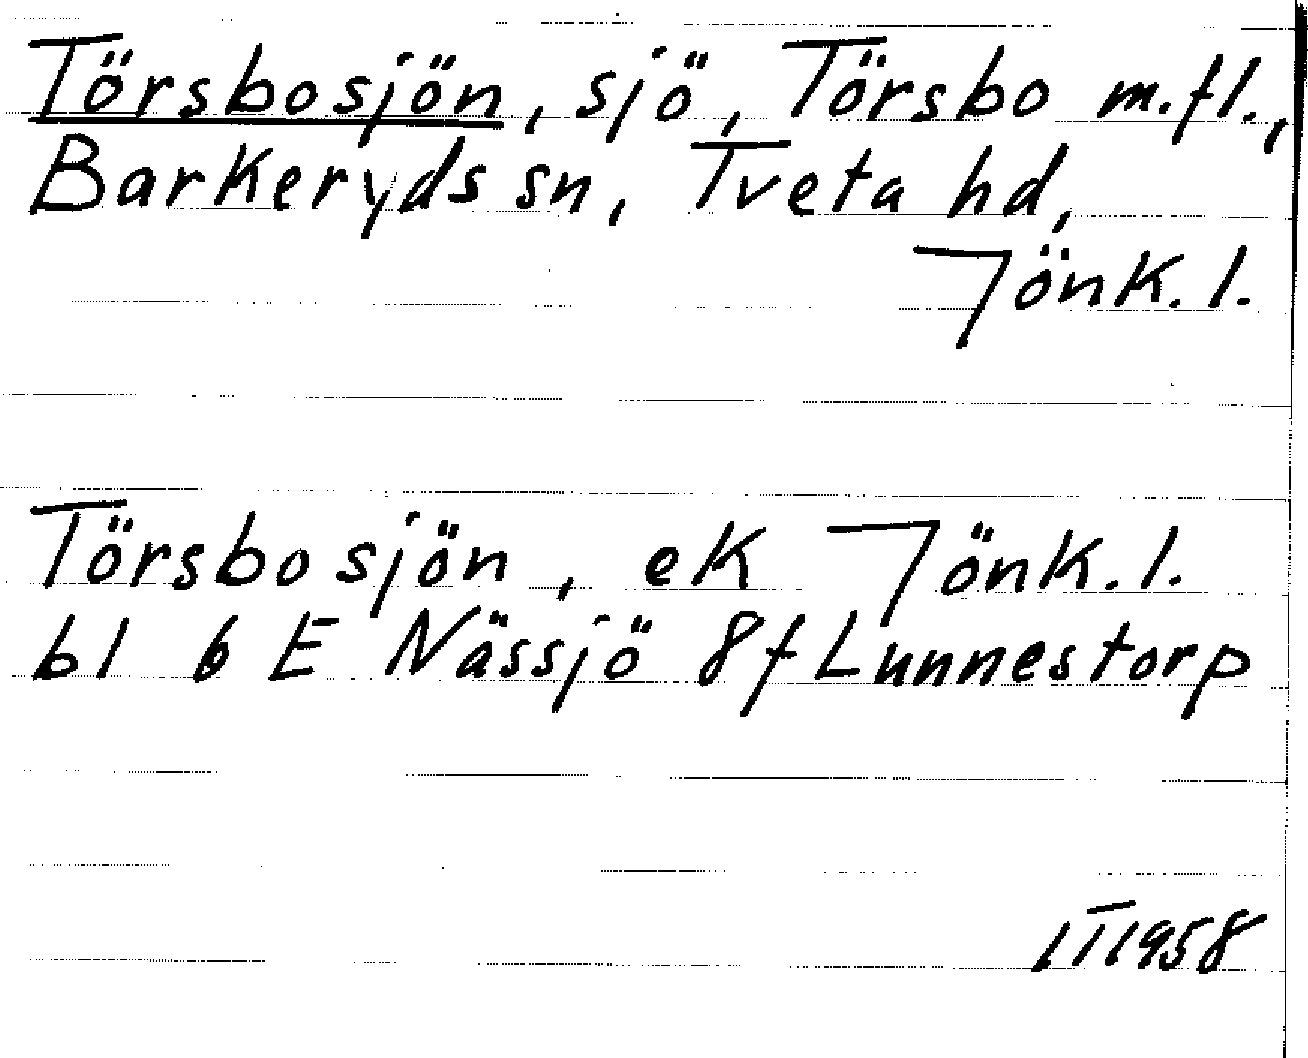 Törsbosjön, sjö, Törsbo m.fl.,
Barkeryds sn, Tveta hd,
Jönk. l.
Törsbosjön, ek Jönk. l.
bl 6 E Nässjö 8f Lunnestorp